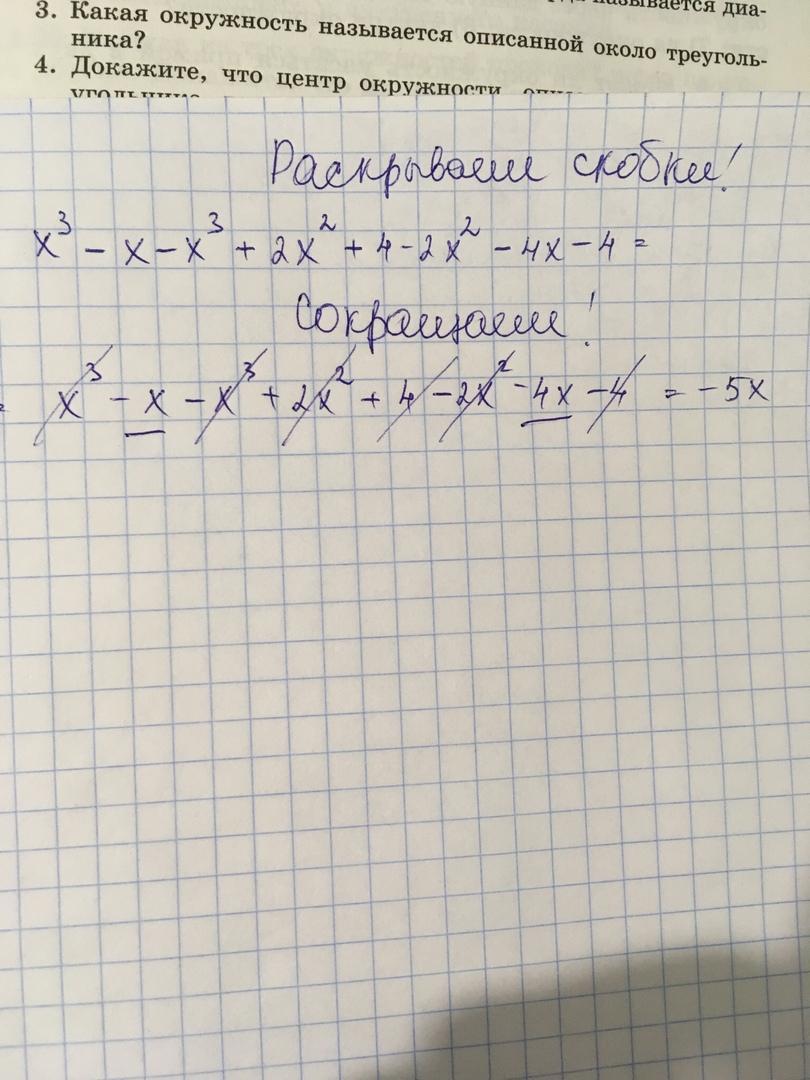 называется диа-
3. Какая окружность называется описанной около треуголь-
ника?
4. Докажите, что центр окружности,
Раскрываем скобки!
x³ - x - x³ + 2x² + 4 - 2x² - 4x - 4 =
Сокращаем!
= x³ - x - x³ + 2x² + 4 - 2x² - 4x - 4 = -5x